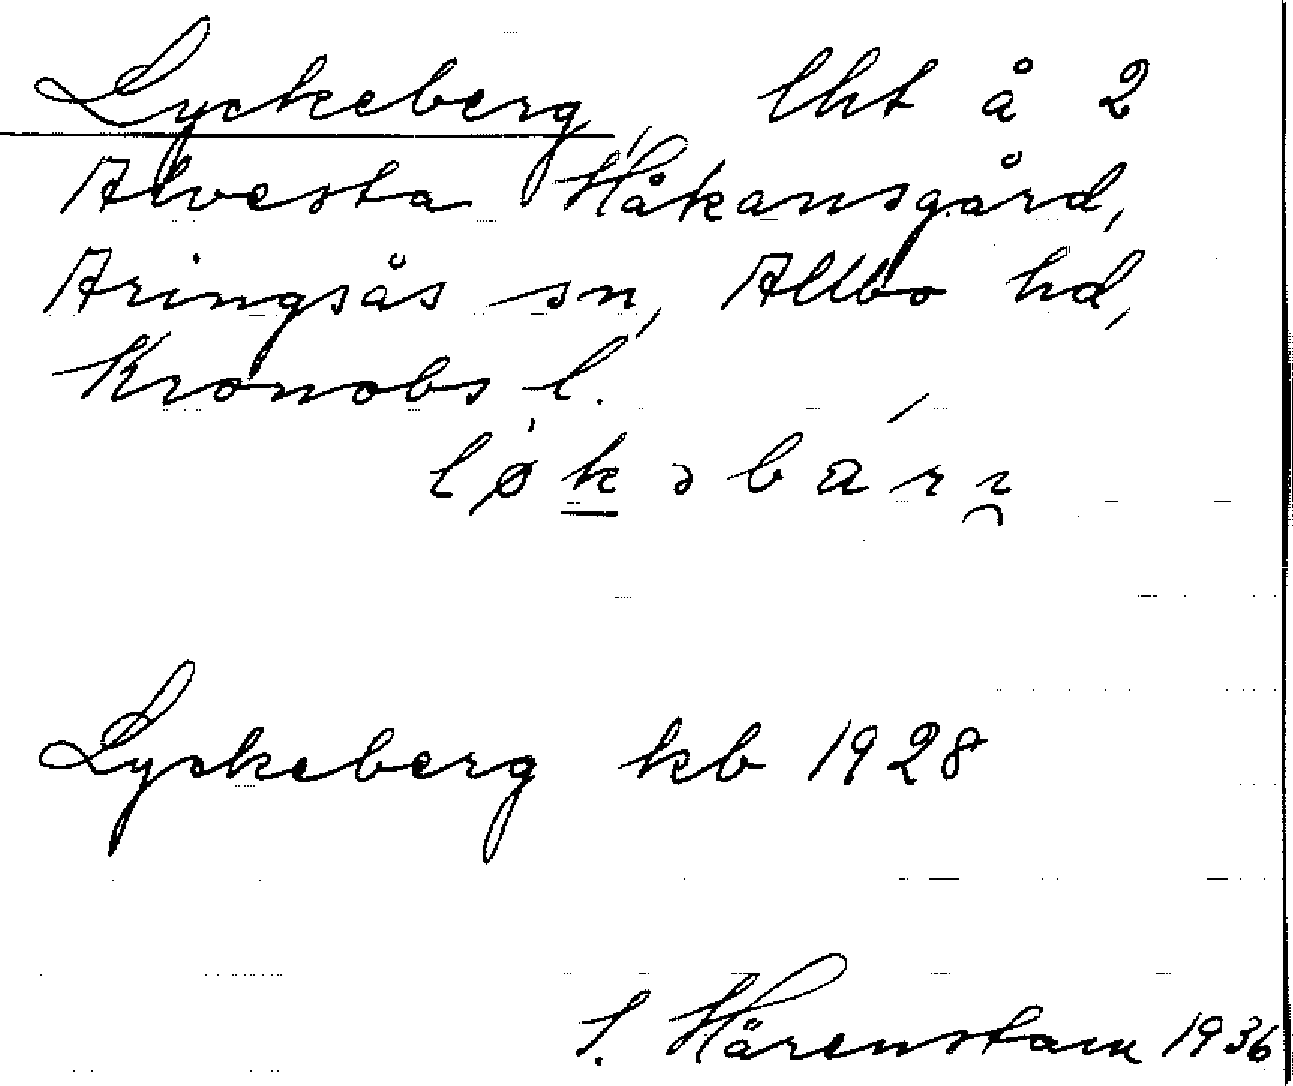 Lyckeberg, lht å 2
Alvesta Håkansgård,
Aringsås sn, Allbo hd,
Kronobs l.
Lyckeberg kb 1928
S. Hårenstam 1936